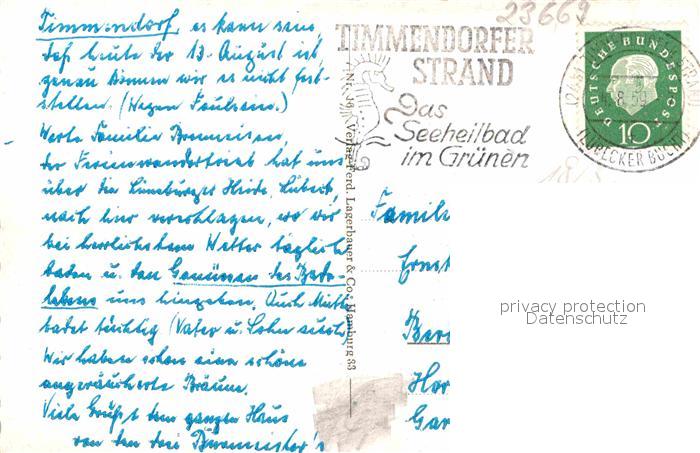 Timmendorf, es kann sein,
daß heute der 13. August ist,
genau können wir es nicht fest-
stellen. (Wegen Faulsein.)
Werte Familie
der Ferienwandertrieb hat uns
über die Lüneburger Heide, Lübeck,
nach hier verschlagen, wo wir
bei herrlichstem Wetter täglich
baden u. den Genüssen des Bade-
lebens uns hingeben. Auch Mutti
badet tüchtig (Vater u. Sohn auch).
Wir haben schon eine schöne
angeräucherte Bräune.
Viele Grüße dem ganzen Haus
von den drei Bürmeister's
Nr. 36 Verlag Ferd. Lagerbauer & Co., Hamburg 33
23669
TIMMENDORFER
STRAND
Das
Seeheilbad
im Grünen
DEUTSCHE BUNDESPOST
10
8.59
(LÜBECKER BUCHT)
Famili
Ernst
Ber
Hor
Gar
privacy protection
Datenschutz